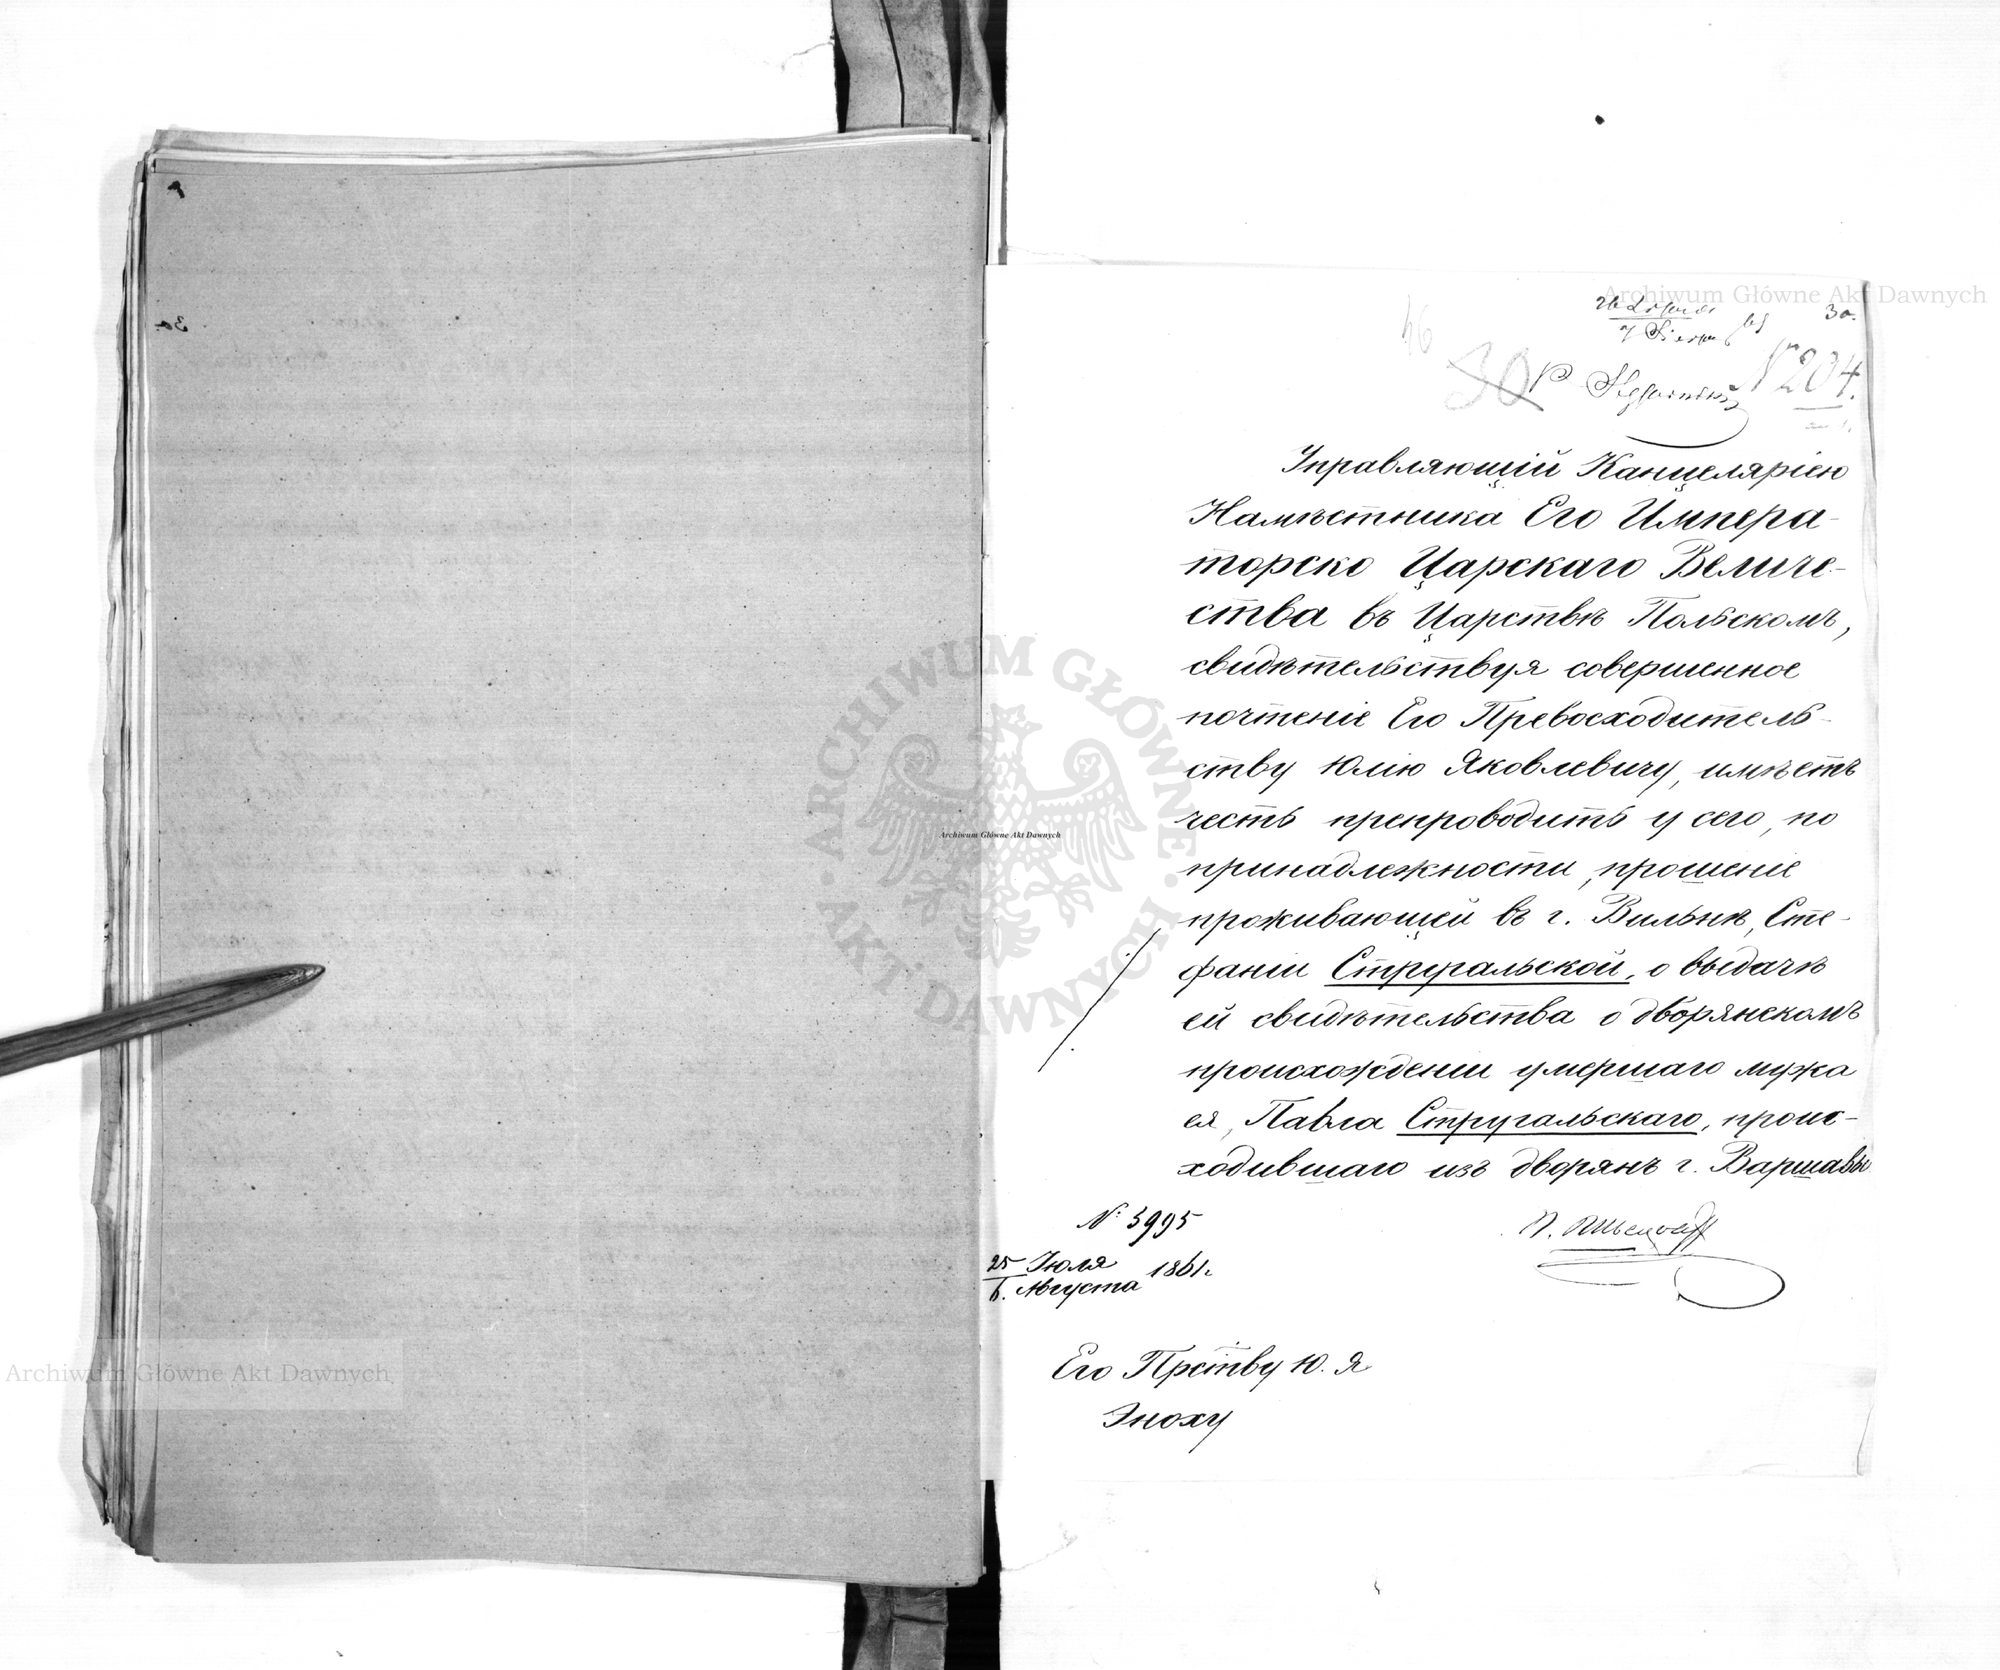 30.
46
30
№ 204.
Управляющій Канцеляріею
Намѣстника Его Импера-
торско Царскаго Величе-
ства въ Царствѣ Польскомъ,
свидѣтельствуя совершенное
почтеніе Его Превосходитель-
ству Юлію Яковлевичу, имѣетъ
честь препроводить у сего, по
принадлежности, прошеніе
проживающей въ г. Вильнѣ, Сте-
фаніи Стругальской, о выдачѣ
ей свидѣтельства о дворянскомъ
происхожденіи умершаго мужа
ея, Павла Стругальскаго, проис-
ходившаго изъ дворянъ г. Варшавы
№ 5995
25 Іюля
6. Августа 1861 г.
Его Прству Ю. Я
Эноху
Archiwum Główne Akt Dawnych
ARCHIWUM GŁÓWNE AKT DAWNYCH
Archiwum Główne Akt Dawnych
Archiwum Główne Akt Dawnych